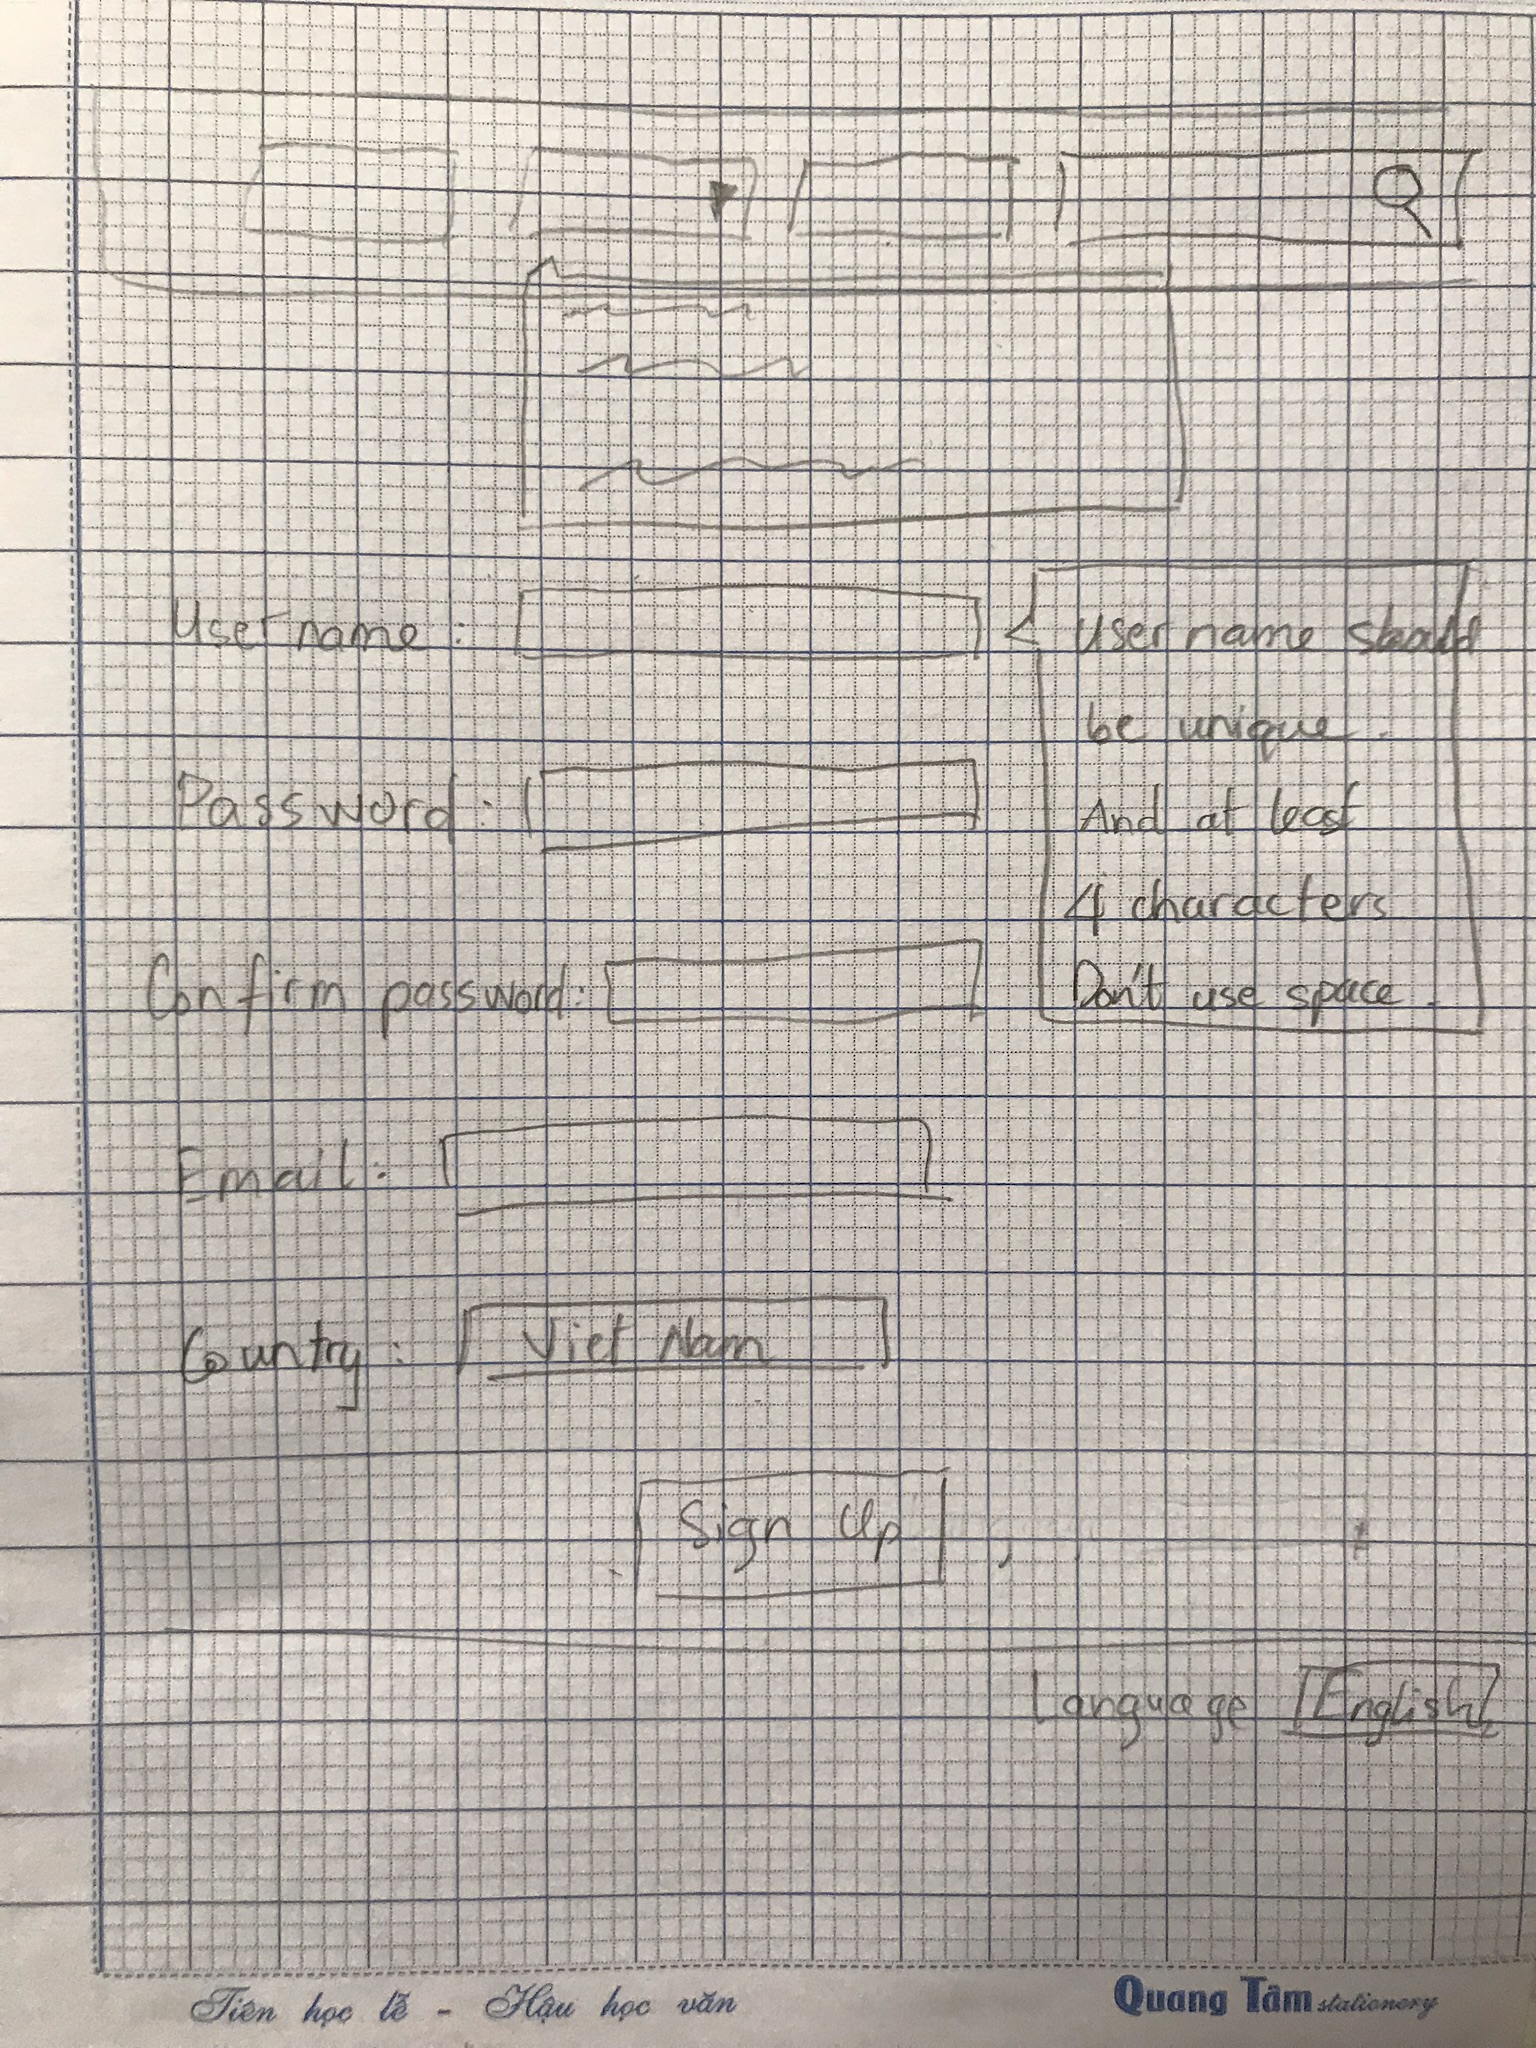 Username:
Username should
be unique.
And at least
4 characters
Don't use space.
Password:
Confirm password:
Email:
Country: Viet Nam
Sign Up
Language English
Tiên học lễ - Hậu học văn
Quang Tâm stationery